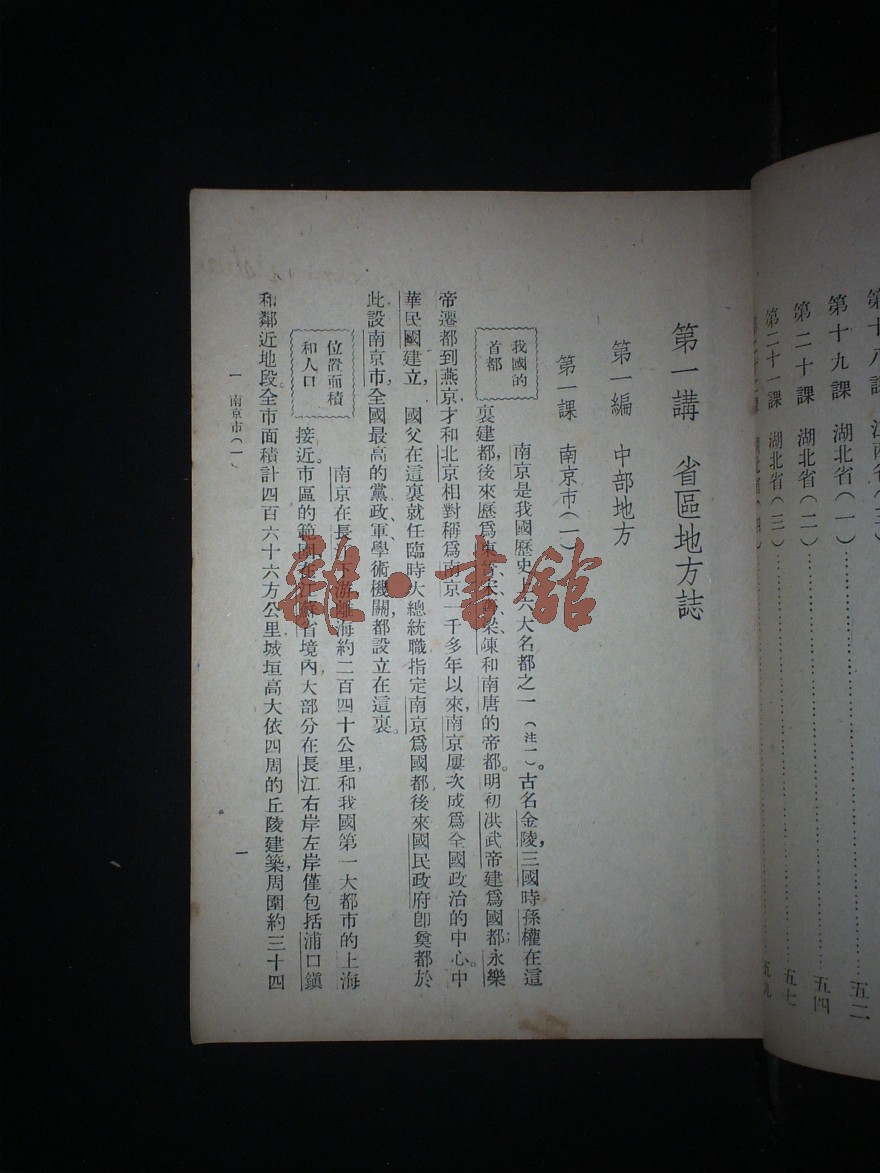 第十九課 湖北省(一)…………五四
第二十課 湖北省(二)…………五四
第二十一課 湖北省(三)…………五七
第一講 省區地方誌
第一編 中部地方
第一課 南京市(一)
我國的
首都
南京是我國歷史上六大名都之一(注一)。古名金陵,三國時孫權在這
裏建都,後來歷爲東晉、宋、齊、梁、陳和南唐的帝都。明初洪武帝建爲國都;永樂
帝遷都到燕京,才和北京相對稱爲南京一千多年以來,南京屢次成爲全國政治的中心。中
華民國建立,國父在這裏就任臨時大總統職指定南京爲國都後來國民政府卽奠都於
此設南京市,全國最高的黨、政、軍學術機關,都設立在這裏。
位置面積
和人口
南京在長江下游離海約二百四十公里,和我國第一大都市的上海
接近。市區的範圍,在江蘇省境內大部分在長江右岸左岸僅包括浦口鎮
和鄰近地段。全市面積計四百六十六方公里城垣高大依四周的丘陵建築,周圍約三十四
一 南京市(一)
一
雜·書館